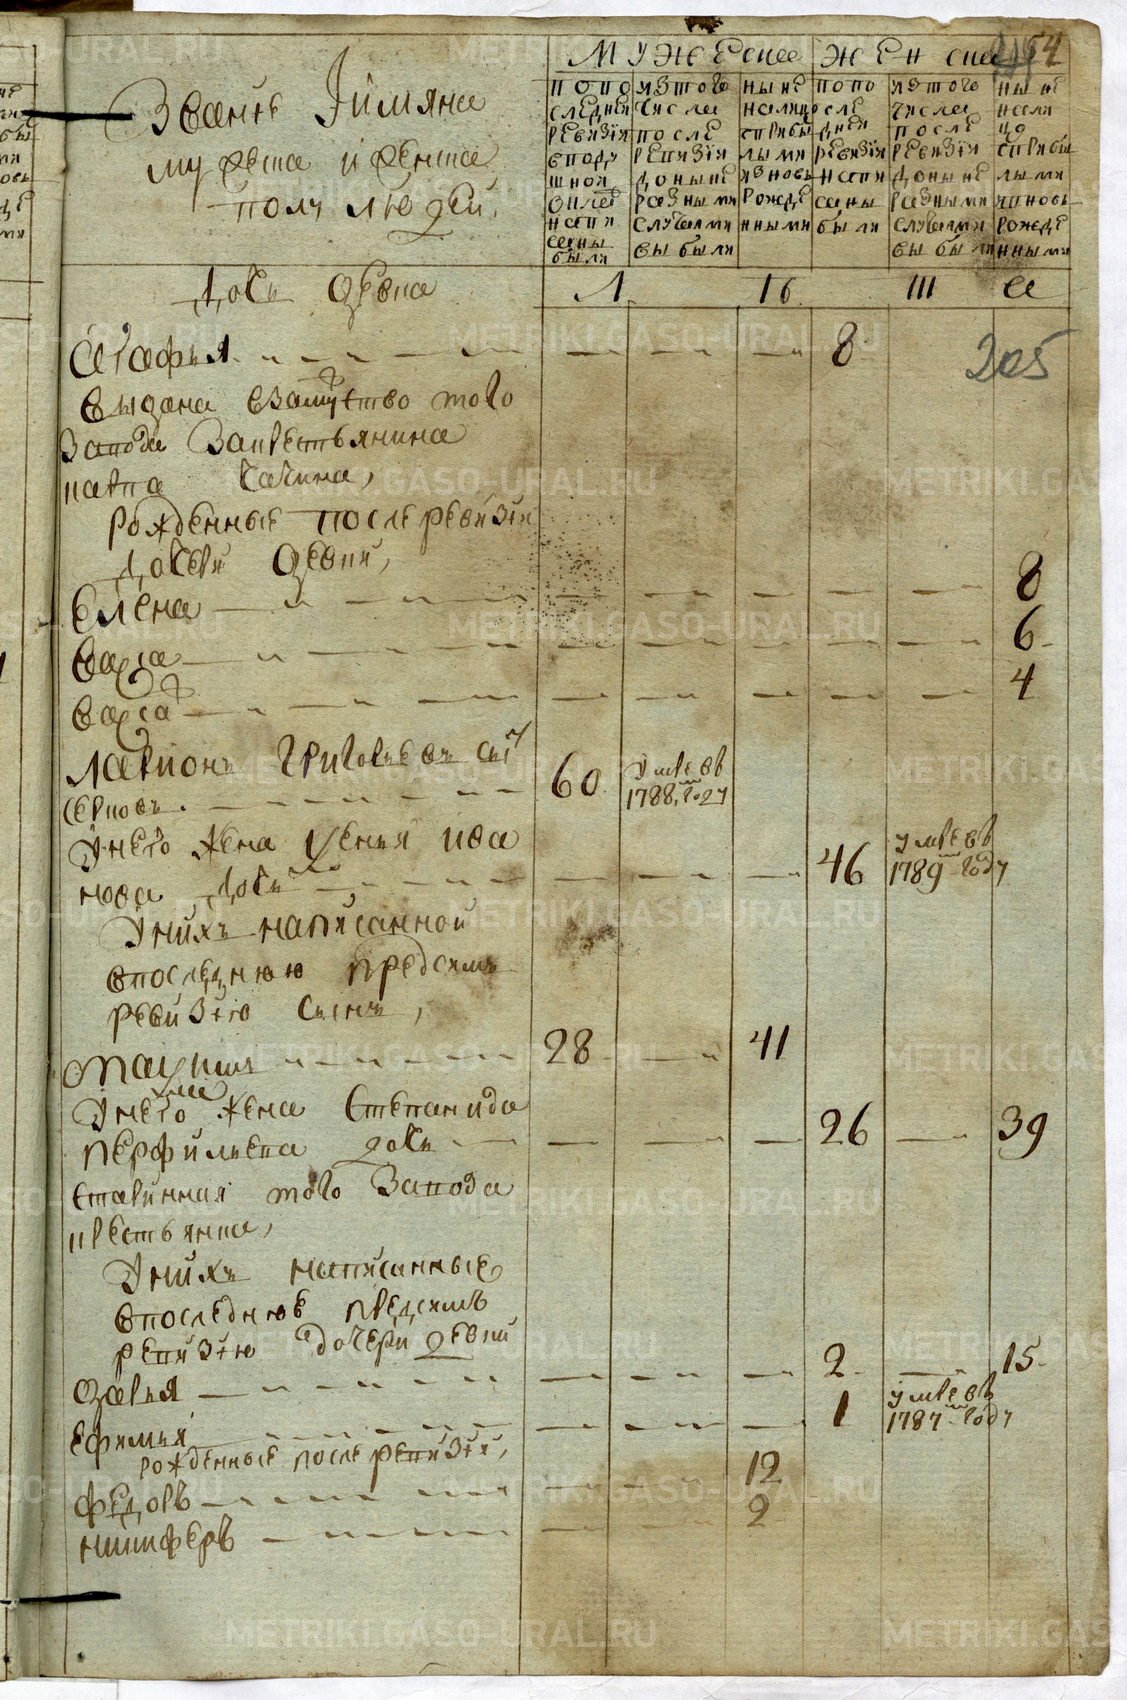 Звание Иимяна
мужеска иженска
полу людей,
МУЖЕСка ЖЕНска 54
попо следней ревизіи вподушной окладъ написаны были
изтого числа послѣ ревизіи доныне разными случаями выбыли
ныне налицо сприбылыми изновь рожденными
попоследней ревизіи написаны были
изтого числа послѣ ревизіи доныне разными случаями выбыли
ныне налицо сприбылыми изновь рожденными
дочь девка
Агафья 8
205
выдана взамужство того
завода закрестьянина
павла
рожденные послеревизіи
дочери девки,
Елена 8
васса 6
васса 4
Ларионъ Григорьевъ сынъ
60 Умре вв 1788 году
Унего жена Ксенья ива
нова дочь 46 умре вв 1789 году
Унихъ написанной
впоследнюю предсимъ
ревизію сынъ,
Максимъ 28 41
Унего жена Степанида
перфильева дочь 26 39
старинная того завода
крестьянка,
Унихъ написанные
впоследнюю предсимъ
ревизію дочери девки
дарья 2 15
Ефимья 1 умре вв 1787 году
рожденные после ревизіи,
Федоръ 12
никифоръ 2
METRIKI.GASO-URAL.RU